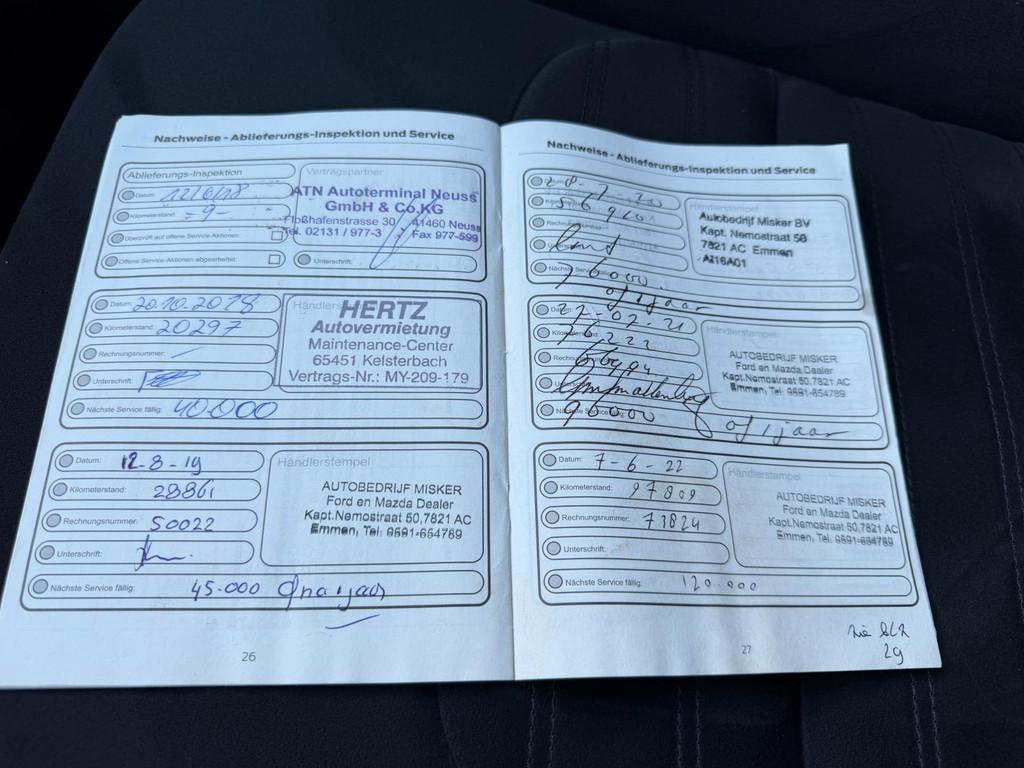 Nachweise - Ablieferungs-Inspektion und Service
Ablieferungs-Inspektion
Datum:
Kilometerstand: = 9 -
Überprüft auf offene Service-Aktionen:
Offene Service-Aktionen abgearbeitet:
Vertragspartner
ATN Autoterminal Neuss
GmbH & Co.KG
Floßhafenstrasse 30 41460 Neuss
Tel. 02131 / 977-3 Fax 977-599
Unterschrift:
Datum: 20.10.2018
Kilometerstand: 20297
Rechnungsnummer:
Unterschrift:
Nächste Service fällig: 40.000
HERTZ
Autovermietung
Maintenance-Center
65451 Kelsterbach
Vertrags-Nr.: MY-209-179
Datum: 12-8-19
Kilometerstand: 28861
Rechnungsnummer: 50022
Unterschrift:
Nächste Service fällig: 45.000
Händlerstempel
AUTOBEDRIJF MISKER
Ford en Mazda Dealer
Kapt.Nemostraat 50,7821 AC
Emmen, Tel. 0591-654789
26
Nachweise - Ablieferungs-Inspektion und Service
76000
of 1 jaar
Autobedrijf Misker BV
Kapt. Nemostraat 50
7821 AC Emmen
A216A01
22-02-21
76223
of 1 jaar
Händlerstempel
AUTOBEDRIJF MISKER
Ford en Mazda Dealer
Kapt.Nemostraat 50,7821 AC
Emmen, Tel. 0591-654789
Datum: 7-6-22
Kilometerstand: 97809
Rechnungsnummer: 73824
Unterschrift:
Nächste Service fällig: 120.000
Händlerstempel
AUTOBEDRIJF MISKER
Ford en Mazda Dealer
Kapt.Nemostraat 50,7821 AC
Emmen, Tel. 0591-654789
zie BLZ
29
27